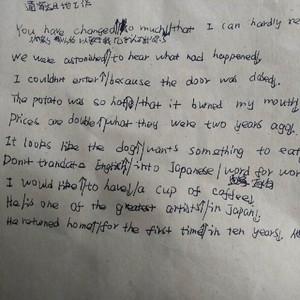 You have changed↑so much/that I can hardly re
We were astonished/to hear what had happened,
I couldn't enter↑/because the door was closed.
The potato was so hot↑/that it burned my mouth
Prices are double↑what they were two years ago.
It looks like the dog↑/wants something to eat
Don't translate English↑/into Japanese/word for wor
I would like↑to have↓/a cup of coffee
He/is one of the greatest artists↑/in Japan.
He returned home↑/for the first time↑/in ten years.